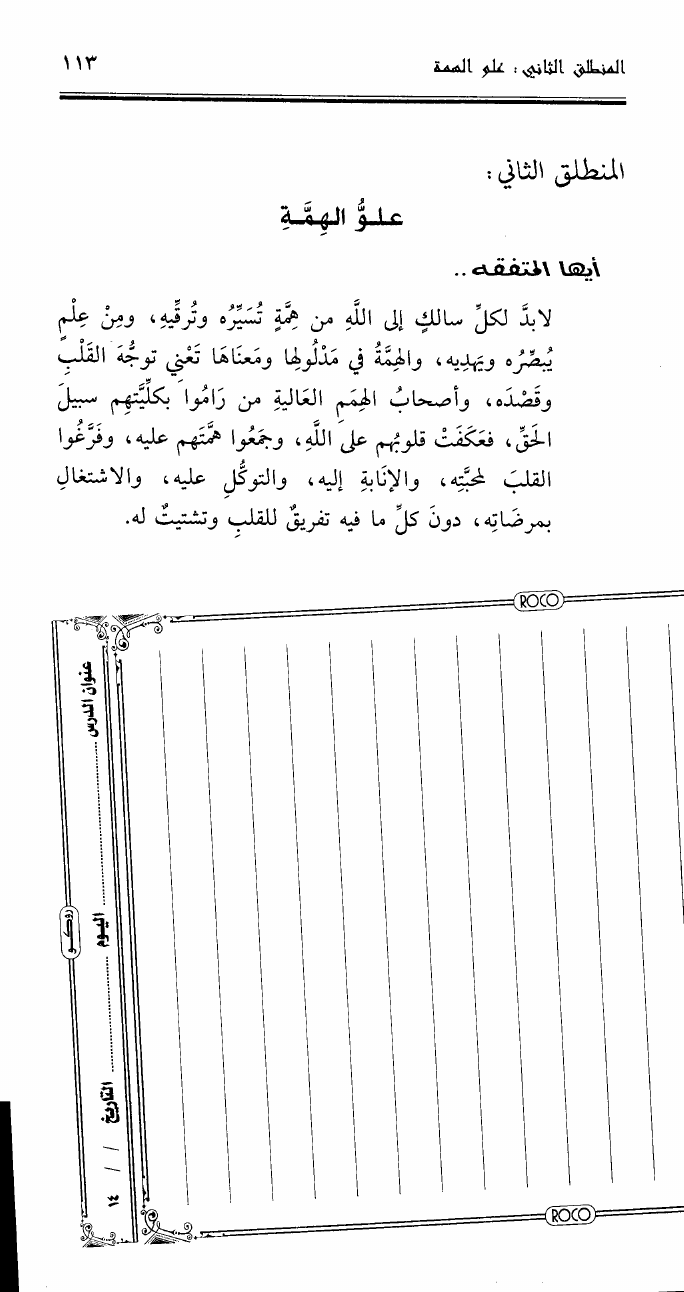 المنطلق الثاني : علو الهمة ١١٣
المنطلق الثاني :
علـوُّ الهِمَّـةِ
أيها المتفقه ..
لابدَّ لكلِّ سالكٍ إلى اللَّهِ من هِمَّةٍ تُسَيِّرُه وتُرقِّيهِ، ومِنْ عِلْمٍ
يُبصِّرُه ويَهدِيه، والهِمَّةُ في مَدْلُولِها ومَعنَاهَا تَعْنِي توجُّهَ القَلْبِ
وقَصْدَه، وأصحابُ الهِمَمِ العَاليةِ من رَامُوا بكلِّيَّتِهم سبيلَ
الحَقِّ، فعَكَفَتْ قلوبُهم على اللَّهِ، وجَمَعُوا هِمَّتَهم عليه، وفَرَّغُوا
القلبَ لمحبَّتِه، والإنَابةِ إليه، والتوكُّلِ عليه، والاشتغالِ
بمرضَاتِه، دونَ كلِّ ما فيه تفريقٌ للقلبِ وتشتيتٌ له.
ROCO
عنوان الدرس
اليـوم
التاريخ / / ١٤
روكـو
ROCO